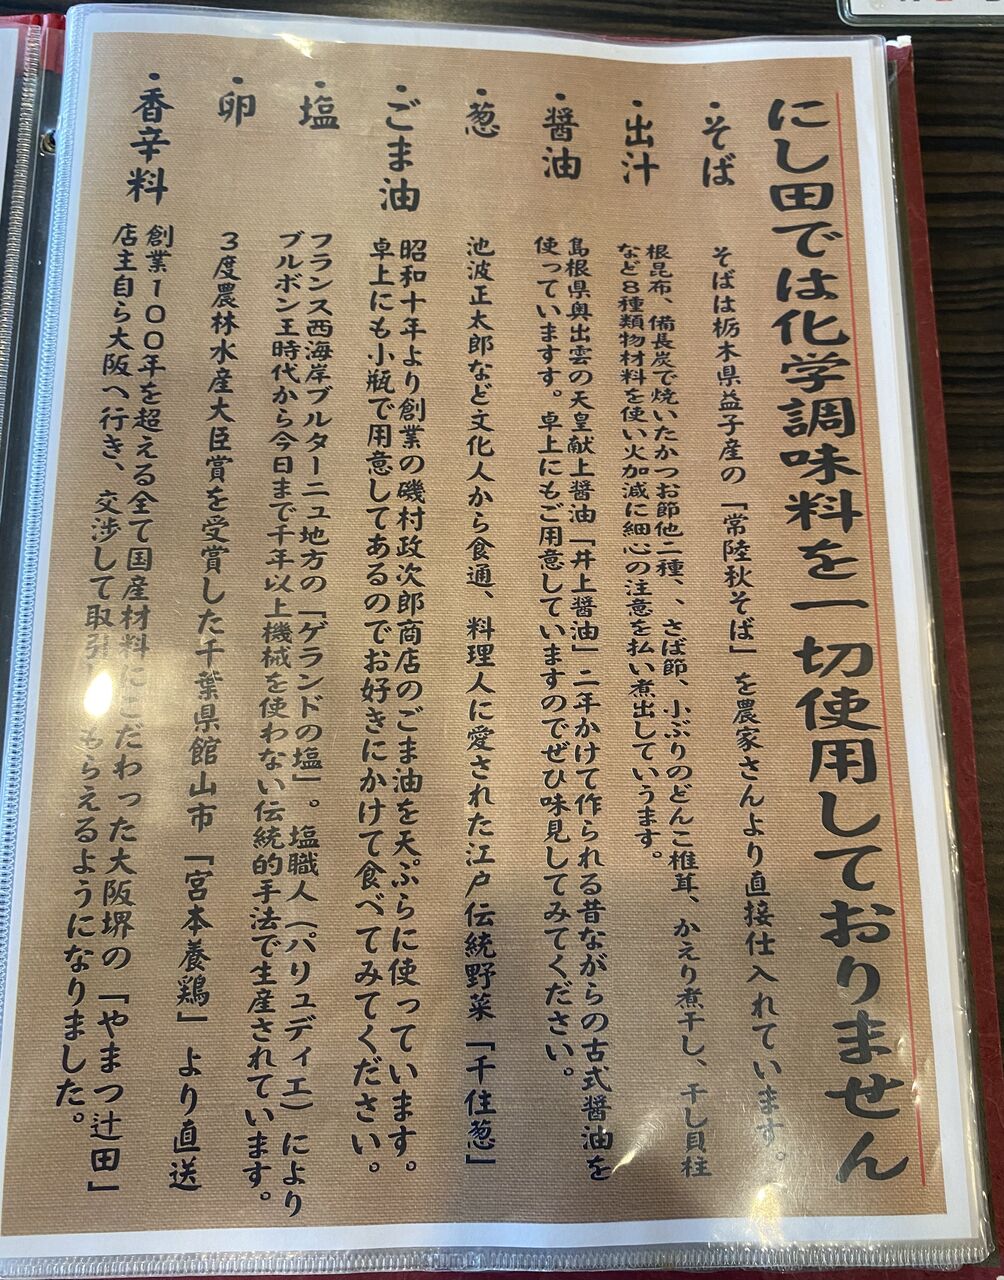 にし田では化学調味料を一切使用しておりません
・そば
そばは栃木県益子産の「常陸秋そば」を農家さんより直接仕入れています。
・出汁
根昆布、備長炭で焼いたかつお節他二種、、さば節、小ぶりのどんこ椎茸、かえり煮干し、干し貝柱
など8種類物材料を使い火加減に細心の注意を払い煮出していうます。
・醤油
島根県奥出雲の天皇献上醤油「井上醤油」二年かけて作られる昔ながらの古式醤油を
使っていますす。卓上にもご用意していますのでぜひ味見してみてください。
・葱
池波正太郎など文化人から食通、料理人に愛された江戸伝統野菜「千住葱」
・ごま油
昭和十年より創業の磯村政次郎商店のごま油を天ぷらに使っています。
卓上にも小瓶で用意してあるのでお好きにかけて食べてみてください。
・塩
フランス西海岸ブルターニュ地方の「ゲランドの塩」。塩職人（パリュディエ）により
ブルボン王時代から今日まで千年以上機械を使わない伝統的手法で生産されています。
・卵
３度農林水産大臣賞を受賞した千葉県館山市「宮本養鶏」より直送
・香辛料
創業１００年を超える全て国産材料にこだわった大阪堺の「やまつ辻田」
店主自ら大阪へ行き、交渉して取引もらえるようになりました。